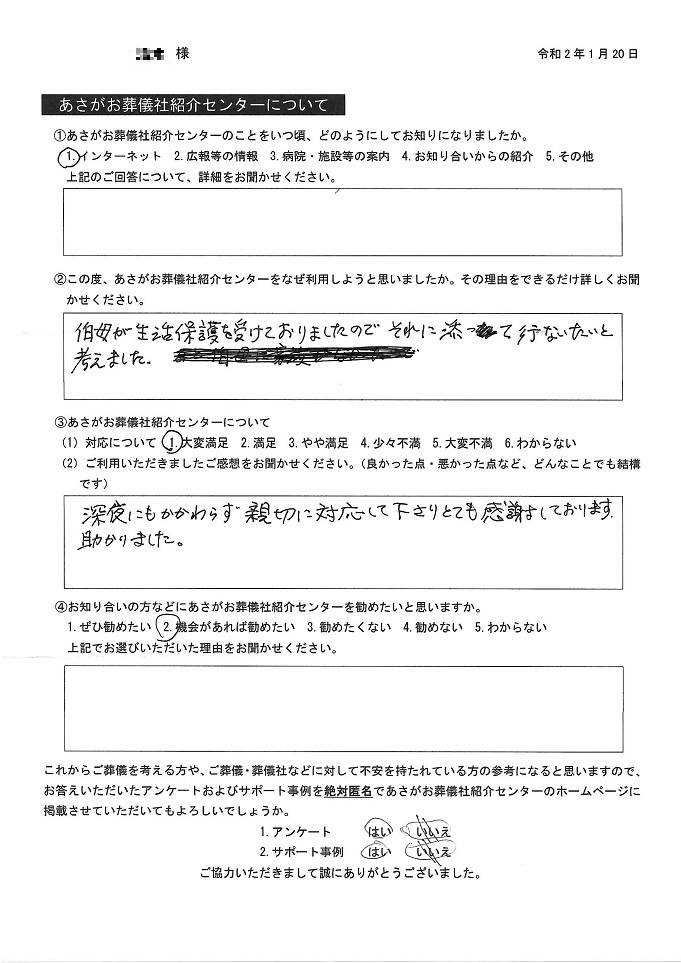 様
令和2年1月20日
あさがお葬儀社紹介センターについて
①あさがお葬儀社紹介センターのことをいつ頃、どのようにしてお知りになりましたか。
1.インターネット 2.広報等の情報 3.病院・施設等の案内 4.お知り合いからの紹介 5.その他
上記のご回答について、詳細をお聞かせください。
②この度、あさがお葬儀社紹介センターをなぜ利用しようと思いましたか。その理由をできるだけ詳しくお聞
かせください。
伯母が生活保護を受けておりましたのでそれに添って行ないたいと
考えました。
③あさがお葬儀社紹介センターについて
(1) 対応について 1.大変満足 2.満足 3.やや満足 4.少々不満 5.大変不満 6.わからない
(2) ご利用いただきましたご感想をお聞かせください。(良かった点・悪かった点など、どんなことでも結構
です)
深夜にもかかわらず親切に対応して下さりとても感謝しております。
助かりました。
④お知り合いの方などにあさがお葬儀社紹介センターを勧めたいと思いますか。
1.ぜひ勧めたい 2.機会があれば勧めたい 3.勧めたくない 4.勧めない 5.わからない
上記でお選びいただいた理由をお聞かせください。
これからご葬儀を考える方や、ご葬儀・葬儀社などに対して不安を持たれている方の参考になると思いますので、
お答えいただいたアンケートおよびサポート事例を絶対匿名であさがお葬儀社紹介センターのホームページに
掲載させていただいてもよろしいでしょうか。
1.アンケート はい いいえ
2.サポート事例 はい いいえ
ご協力いただきまして誠にありがとうございました。